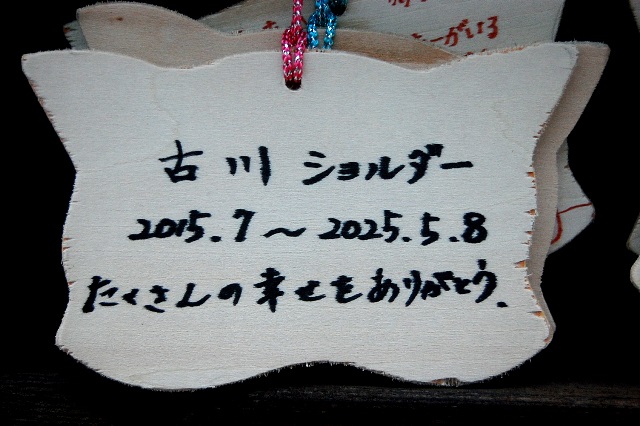 ーがいる
古川 ショルダー
2015.7～2025.5.8
たくさんの幸せをありがとう.